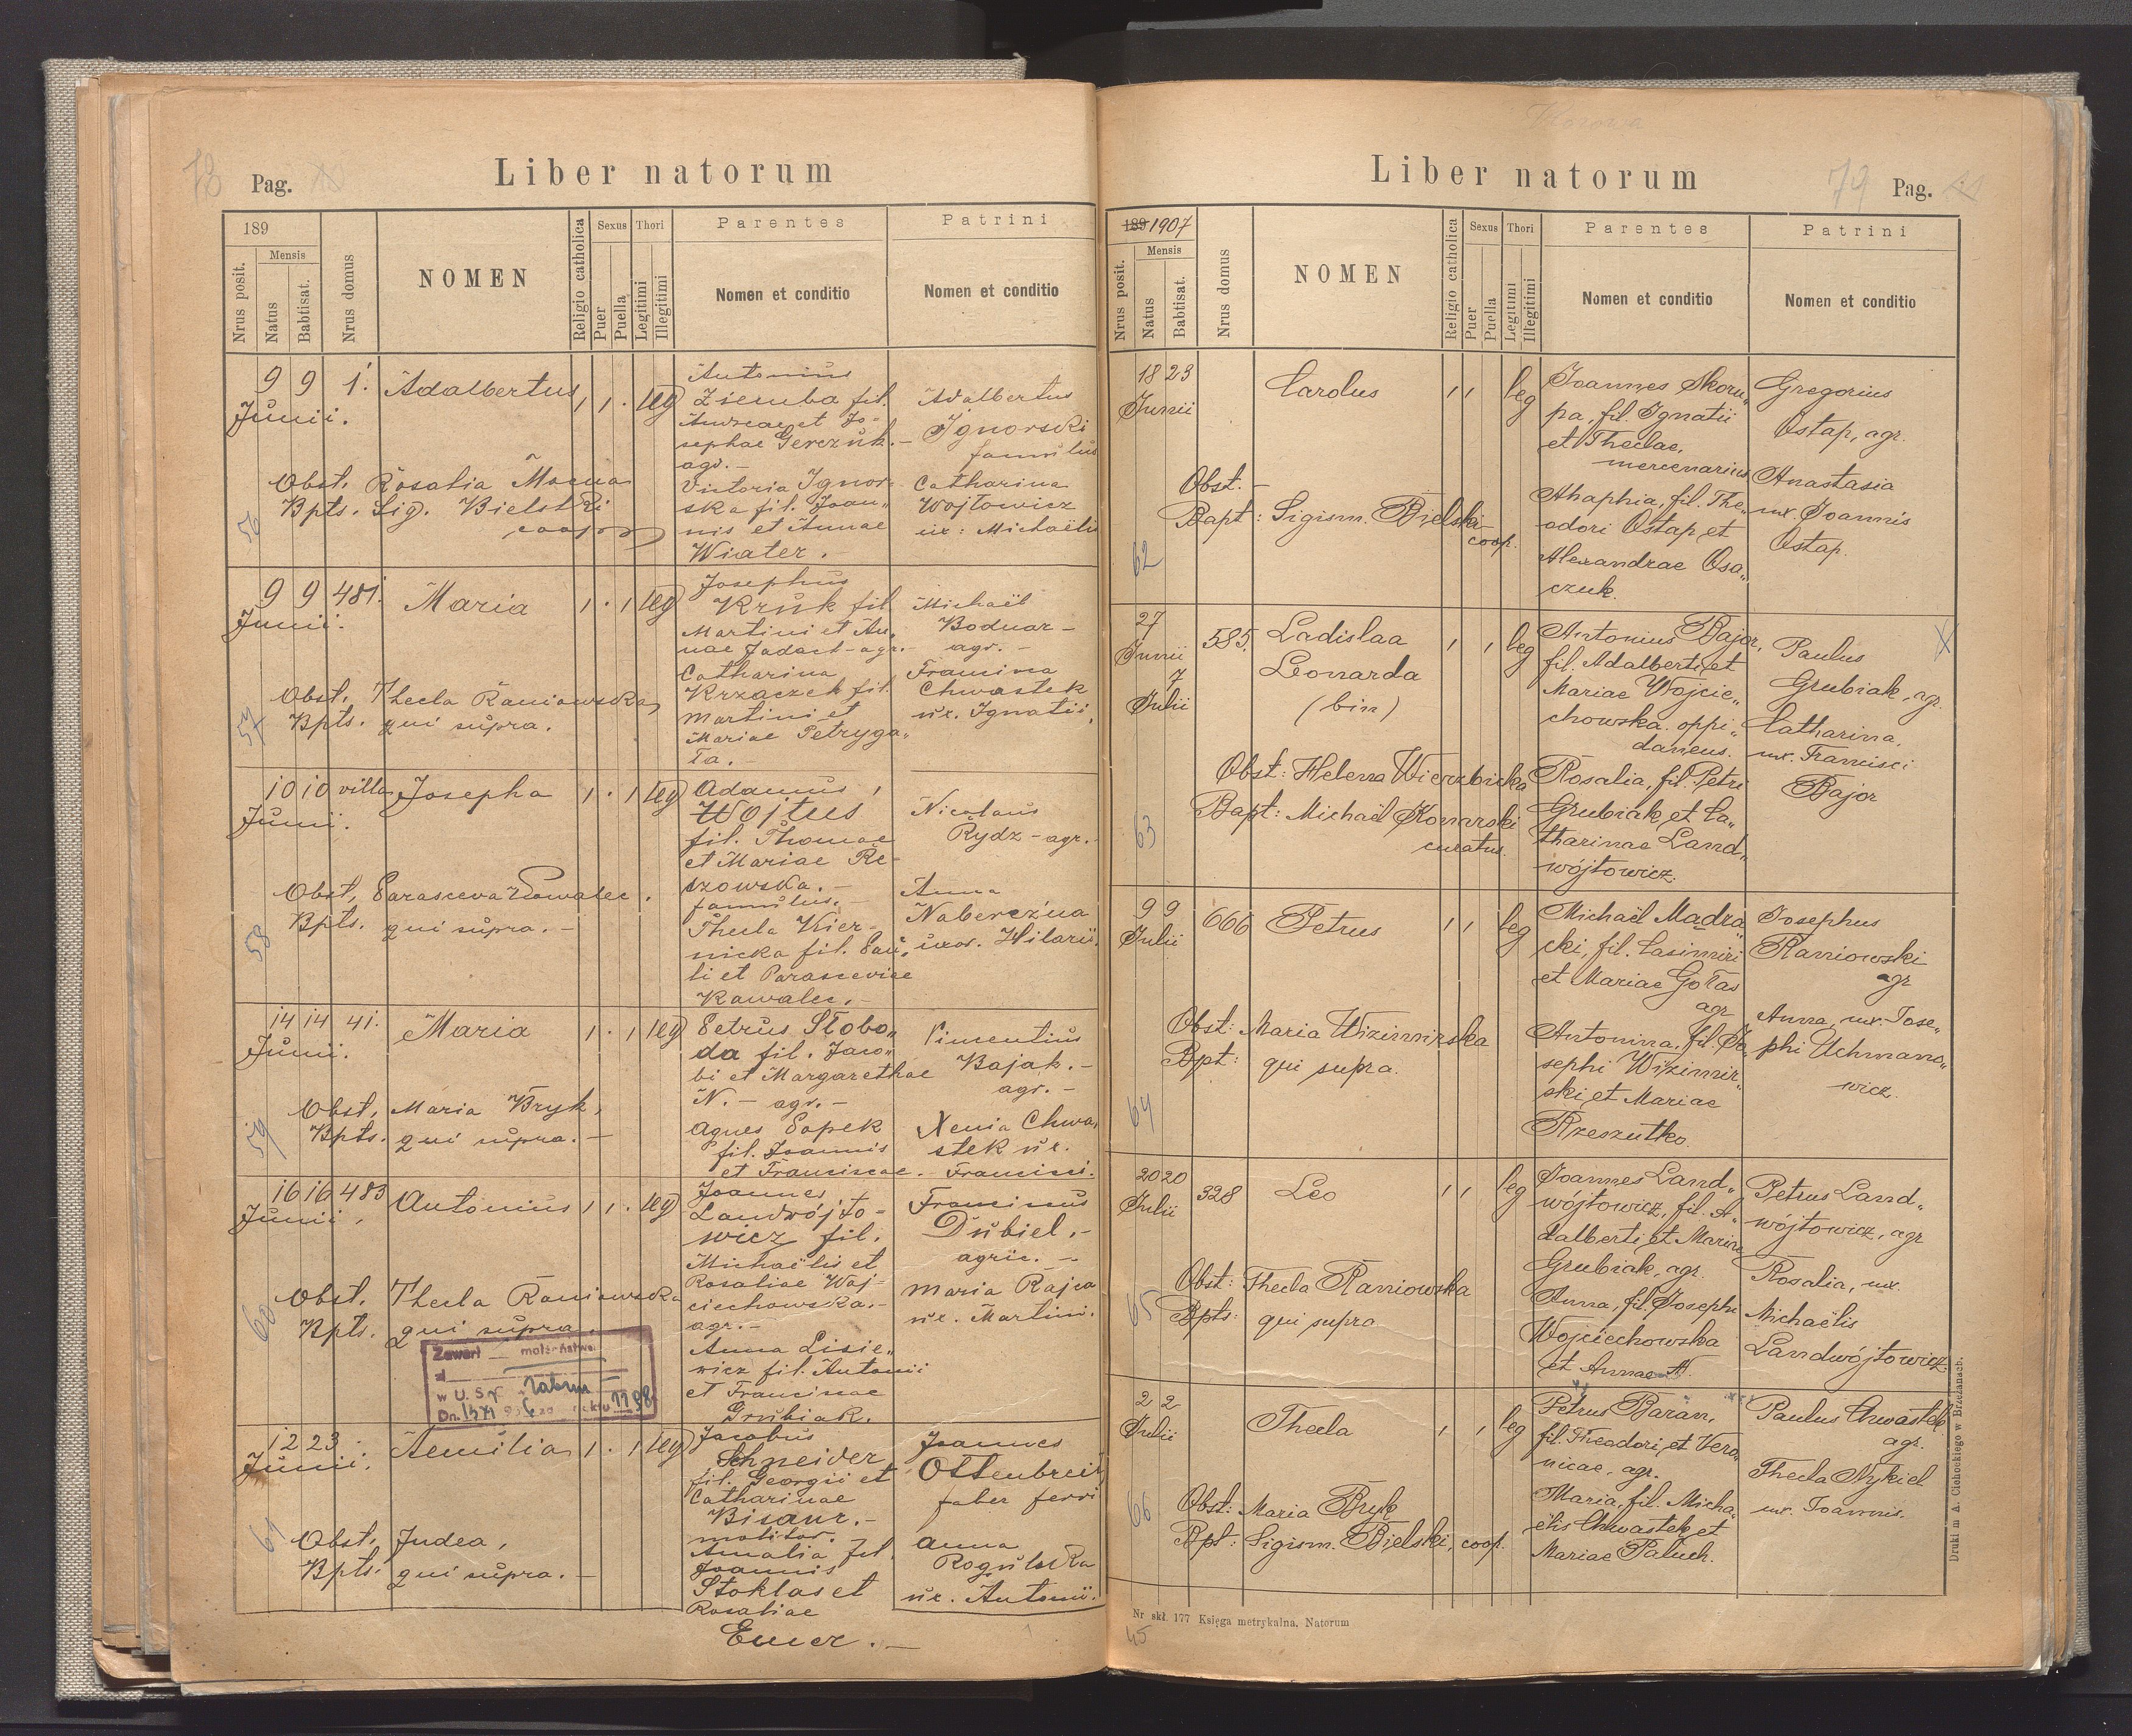 78
Pag.
Liber natorum
189
Nrus posit.
Mensis
Natus
Babtisat.
Nrus domus
NOMEN
Religio catholica
Sexus
Puer
Puella
Thori
Legitimi
Illegitimi
Parentes
Nomen et conditio
Patrini
Nomen et conditio
9 9 1. Adalbertus 1 1 . leg
Junii.
Antonius
Ziemba fil.
Andreae et Jo-
sephae Gerczuk.-
agr.-
Victoria Ignor-
ska fil. Joan„
nis et Annae
Wiater.
Adalbertus
Ignorski
famulus
Catharina
Wojtowicz
ux: Michaëlis
Obst. Rosalia
Bpts. Sig. Bielski
coop
56
9 9 481. Maria 1 . 1 leg
Junii.
Josephus
Kruk fil.
Martini et An„
nae - agr.-
Catharina
Krzaczek fil.
Martini et
Mariae Petryga„
ta.-
Michaël
Bodnar-
agr.-
Francisca
Chwastek
ux. Ignatii.
Obst. Thecla Raniowska
Bpts. qui supra.
57
10 10 villa Josepha 1 . 1 leg
Junii.
Adamus
Wojtus
fil. Thomae
et Mariae Re-
szowska.-
famulus.-
Thecla Kier-
nicka fil. Pau„
li et Parasceviae
Kowalec.-
Nicolaus
Rydz - agr.-
Anna
Naberezna
uxor. Hilarii.
Obst. Parasceva Kowalec.
Bpts. qui supra.-
58
14 14 41. Maria 1 . 1 leg
Junii.
Petrus Słobo„
da fil. Jaco„
bi et Margarethae
N.- agr.-
Agnes Sopek
fil. Joannis
et Franciscae.
Vincentius
Bajak.-
agr.-
Xenia Chwa„
stek ux.
Francisci.
Obst. Maria Bryk,
Bpts. qui supra.-
59
16 16 483 Antonius 1 1 . leg
Junii.
Joannes
Landwójto-
wicz fil.
Michaëlis et
Rosaliae Woj-
ciechowska.-
agr.-
Anna Lisie„
wicz fil. Antonii
et Franciscae
Grubiak.
Franciscus
Dubiel.-
agric.-
Maria Rajca
ux. Martini.
Obst. Thecla Raniowska
Bpts. qui supra.
60
Zawarł małżeństwo
w U. S.
Dn.
12 23 Aemilia 1 . 1 leg
Junii.
Jacobus
Schneider
fil. Georgii et
Catharinae
Bisanz.-
molitor.
Amalia fil.
Joannis
Stoklas et
Rosaliae
Emer.-
Joannes
Ottenbreit
faber ferri
Anna
Rogulska
ux. Antonii.
Obst. Judea,
Bpts. qui supra.-
61
Liber natorum
79
Pag.
189 1907
Nrus posit.
Mensis
Natus
Babtisat.
Nrus domus
NOMEN
Religio catholica
Sexus
Puer
Puella
Thori
Legitimi
Illegitimi
Parentes
Nomen et conditio
Patrini
Nomen et conditio
18 23 Carolus 1 1 leg
Junii
Joannes Skoru„
pa, fil. Ignatii
et Theclae,
mercenarius
Ahaphia, fil. The„
odori Ostap et
Alexandrae Osa„
czuk.
Gregorius
Ostap, agr.
Anastasia
ux. Joannis
Ostap.
Obst. -
Bapt: Sigism. Bielski
coop.
62
27
Junii
7
Julii
585. Ladislaa
Leonarda
(bin)
1 1 leg
Antonius Bajor,
fil. Adalberti et
Mariae Wojcie„
chowska. oppi„
daneus.
Rosalia, fil. Petri
Grubiak et Ca„
tharinae Land„
wójtowicz.
Paulus
Grubiak, agr.
Catharina,
ux. Francisci
Bajor
X
Obst: Helena Wierzbicka
Bapt: Michaël Konarski
curatus.
63
9 9 666 Petrus 1 1 leg
Julii
Michaël Madra„
cki, fil. Casimiri
et Mariae Gołas
agr
Antonina, fil. Jo„
sephi Wizimir„
ski et Mariae
Rzeszutko.
Josephus
Raniowski
agr
Anna, ux. Jose„
phi Uchmano„
wicz.
Obst: Maria Wizimirska
Bpt: qui supra.
64
20 20 328 Leo 1 1 leg
Julii
Joannes Land„
wójtowicz, fil. A„
dalberti et Mariae
Grubiak, agr.
Anna, fil. Josephi
Wojciechowska
et Annae N.
Petrus Land„
wójtowicz, agr
Rosalia, ux.
Michaëlis
Landwójtowicz.
Obst: Thecla Raniowska
Bpts: qui supra
65
2 2 Thecla 1 1 leg
Julii
Petrus Baran,
fil. Theodori et Vero„
nicae, agr.
Maria, fil. Micha„
ëlis Chwastek et
Mariae Paluch.
Paulus Chwastek
agr.
Thecla Nykiel
ux. Joannis.
Obst: Maria Bryk
Bpt: Sigism. Bielski, coop.
66
Nr skł. 177 Księga metrykalna. Natorum
45
Druki m A. Cichockiego w Brzeżanach.